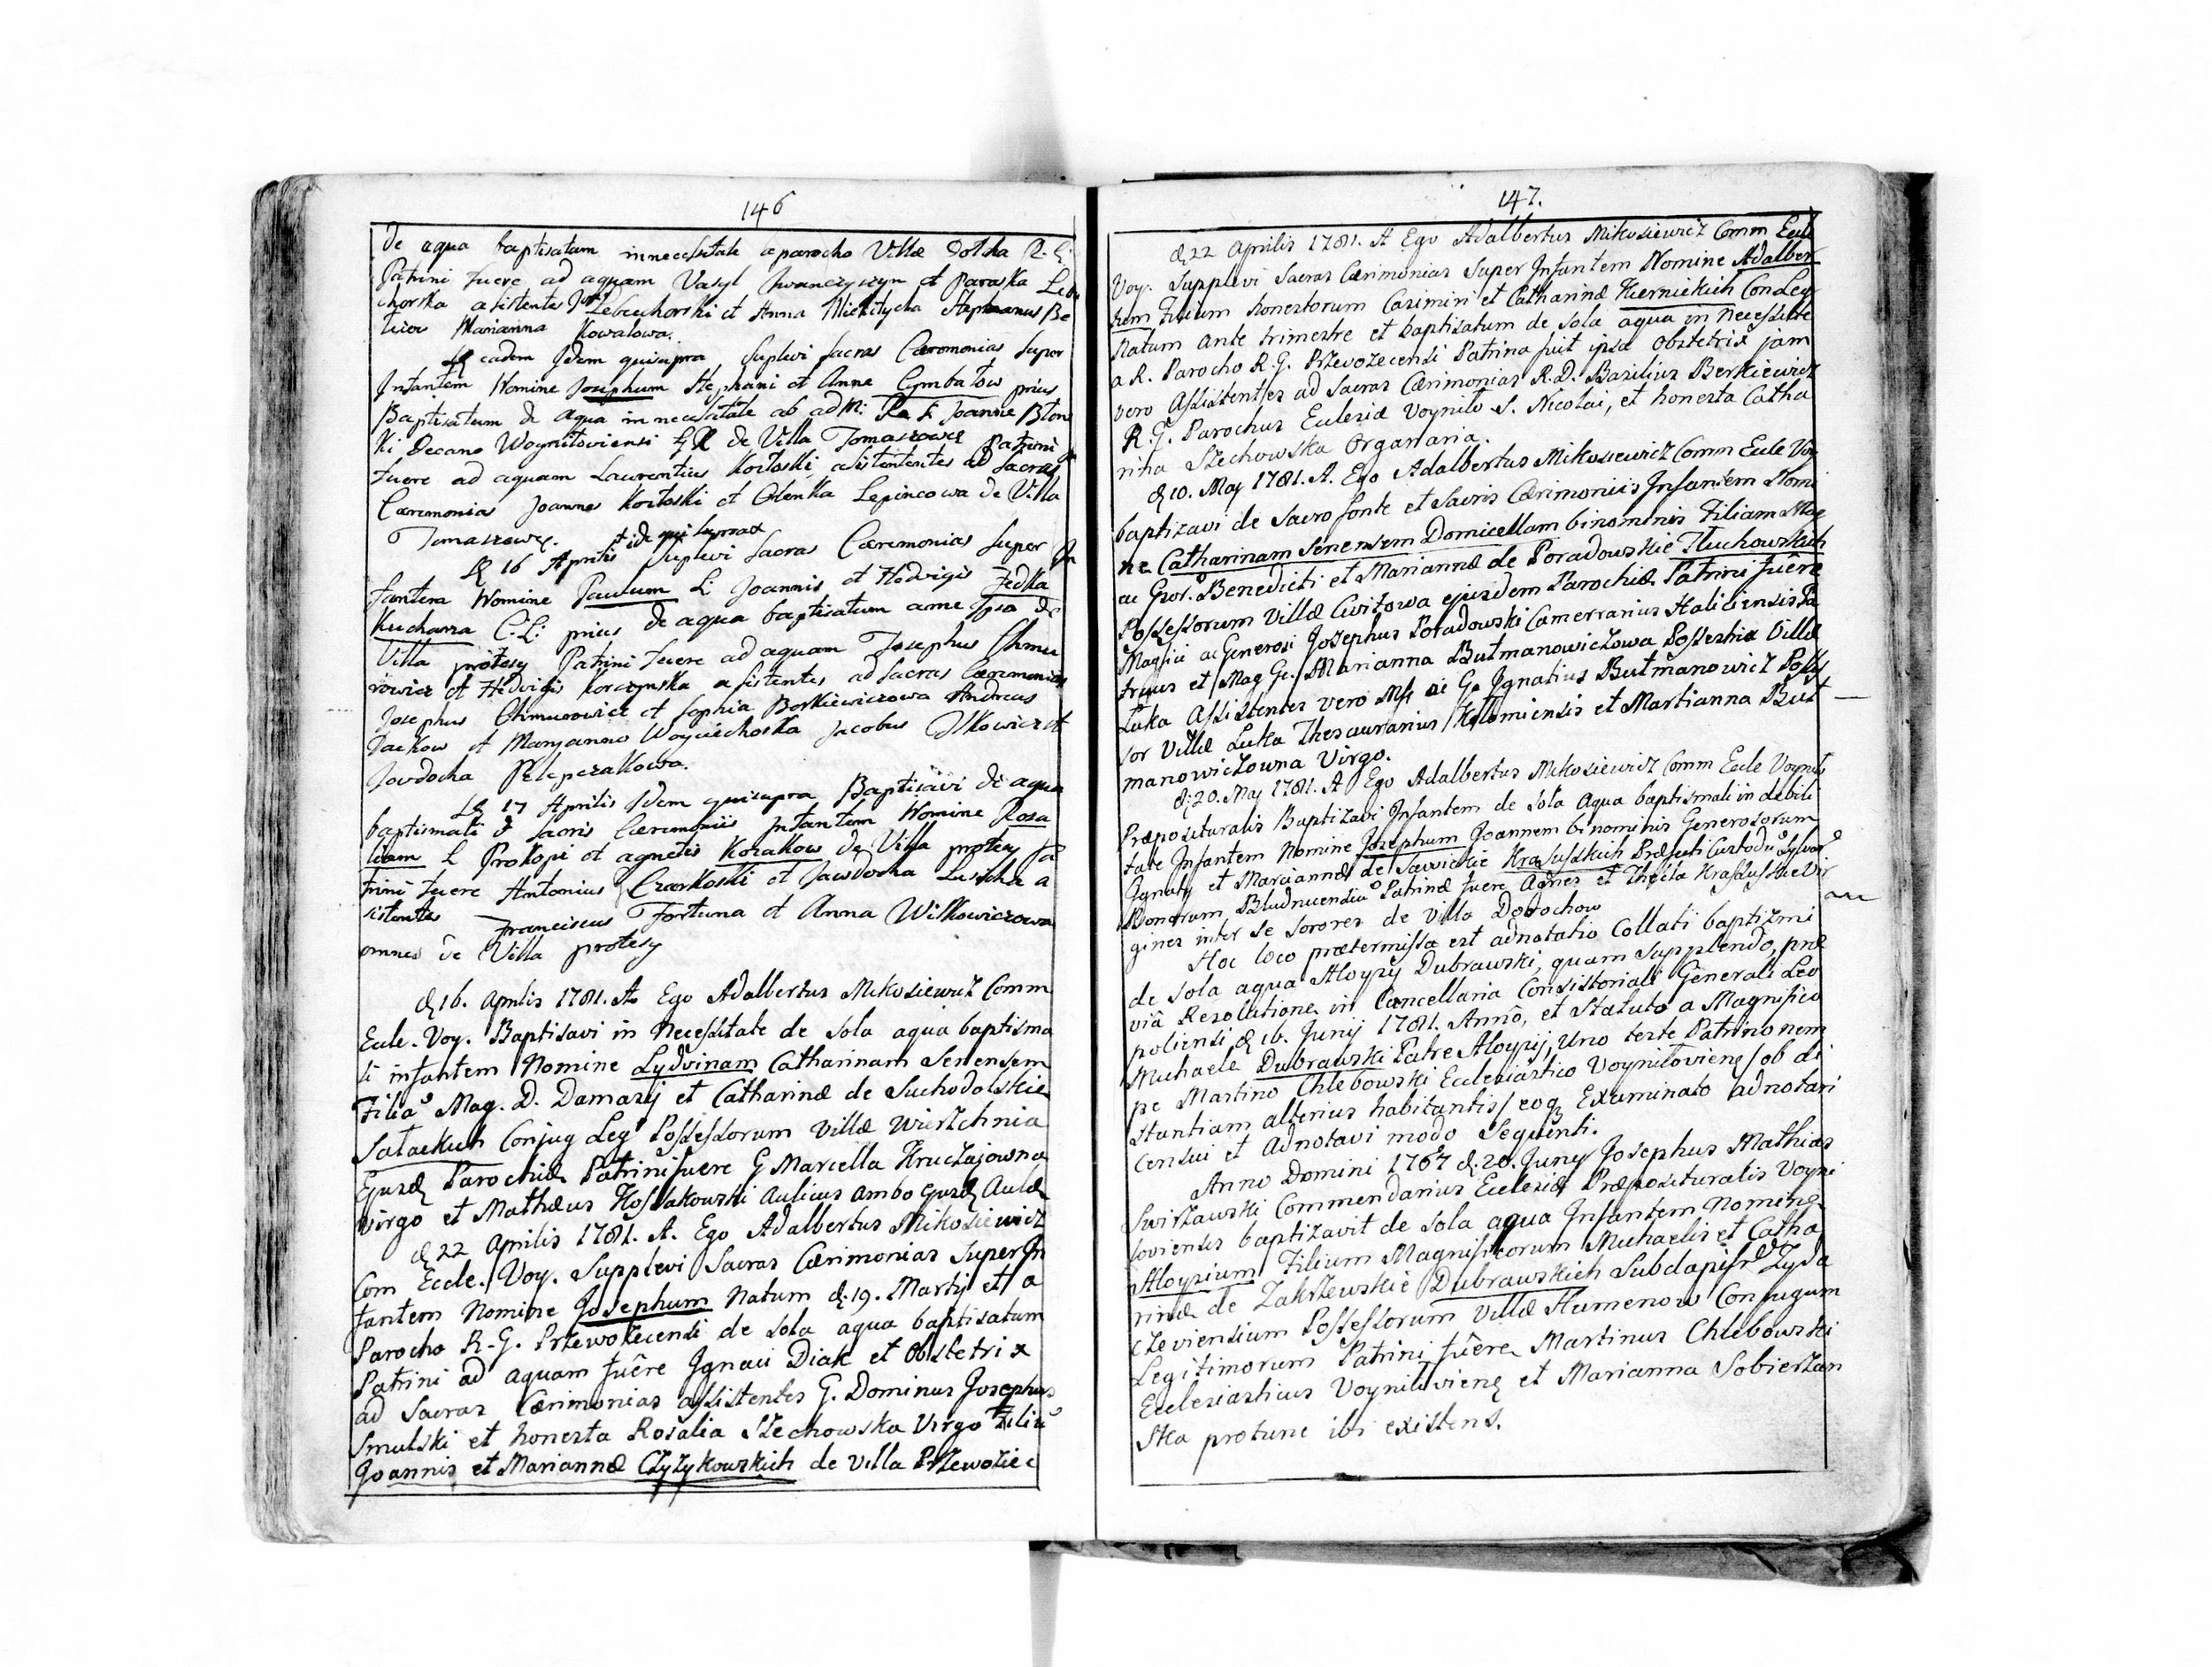 146
de aqua baptisatum in necessitate a parocho Villæ Dolha R. G.
Patrini fuere ad aquam Vasyl Iwanczyszyn et Paraska Lebu
chorska asistentes Lebuchorski et Anna Mickitycha Stephanus Be
Marianna Kowalowa.
eadem Idem quisupra suplevi sacras Cæremonias super
Infantem Nomine Josephum Stephani et Anne Cymbatow prius
Baptisatum de aqua in necessitate ab adm: Joanne Blon
ki Decano Woynitoviensi de Villa Tomaszowce Patrini
fuere ad aquam Laurentius Kozloski asistentes ad sacras
Cæremonias Joannes Kozloski et Olenka Lepincowa de Villa
Tomaszowce.
16 Aprilis idem qui supra suplevi sacras Cæremonias super In
fantem Nomine Paulum L Joannis et Hedvigis Fedka
Kucharza C. L: prius de aqua baptisatum a me Ipso de
Villa protesy Patrini fuere ad aquam Josephus Chmu
rowicz et Hedvigis Korczynska asistentes ad sacras Cæremonias
Josephus Chmurowicz et Sophia Borkiewiczowa Andreas
Dackow et Maryanna Woyciechoska Jacobus Ilkowicz et
Jovdocha Pelepczakowa.
17 Aprilis Idem quisupra Baptisavi de aqua
baptismali et sacris Cæremoniis Infantem Nomine Rosa
liam L Prokopi et agnetis Kozakow de Villa protesy Pa
trini fuere Antonius Czarkoski et Jawdocha a
sistentes Franciscus Fortuna et Anna Wilkowiczowa
omnes de Villa protesy
d 16. Aprilis 1781. A. Ego Adalbertus Mikosiewicz Comm
Eccle. Voy. Baptisavi in Necessitate de sola aqua baptisma
li infantem Nomine Lydvinam Catharinam Senensem
Filiã Mag. D. Damazij et Catharinæ de Suchodolskie
Satackich Conjug Leg Possessorum Villæ Wierzchnia
Ejusd Parochiæ Patrini fuere G Marcella Kruczajowna
virgo et Mathæus Kossakowski Aulicus ambo Ejusd Aulæ
d 22 Aprilis 1781. A. Ego Adalbertus Mikosiewicz
Com Eccle. Voy. Supplevi Sacras Cærimonias Super In
fantem Nomine Josephum Natum d. 19. Martij et a
Parocho R. G. Przewozecensi de sola aqua baptisatum
Patrini ad aquam fuêre Ignaci Diak et Obstetrix
ad Sacras Cærimonias assistentes G. Dominus Josephus
Smulski et honesta Rosalia Szechowska Virgo Filiũ
Joannis et Mariannæ Czyzykowskich de Villa Przewoziec
147.
d 22 Aprilis 1781. A Ego Adalbertus Mikosiewicz Comm Eccle
Voy. Supplevi Sacras Cærimonias Super Infantem Nomine Adalber
tum Filium honestorum Casimiri et Catharinæ Kiernickich Con Leg
Natum ante trimestre et baptisatum de sola aqua in Necessitate
a R. Parocho R. G. Przewozecensi Patrina fuit ipsa Obstetrix jam
vero Assistentes ad Sacras Cærimonias R. D. Basilius Berkiewicz
R. G. Parochus Eccleziæ Voynilo S. Nicolai, et honesta Catha
rina Szechowska Organaria.
d 10. May 1781. A. Ego Adalbertus Mikosiewicz Comm Eccle Voy
baptizavi de Sacro fonte et Sacris Cærimoniis Infantem Nomi
ne Catharinam Senensem Domicellam binominis Filiam Mag
ac Gror. D Benedicti et Mariannæ de Poradowskie Tluchowskich
Possessorum Villæ Cwitowa ejusdem Parochiæ Patrini fuêre
Magfici ac Generosi Josephus Poradowski Camerrarius Haliciensis Pa
truus et Mag Ge. Marianna Butmanowiczowa Possestrix Villæ
Luka Assistentes vero Mfi ac G. Ignatius Butmanowicz Posses
sor Villæ Luka Thesaurarius Kolomiensis et Martianna But
manowiczowna Virgo.
d. 20. May 1781. A Ego Adalbertus Mikosiewicz Comm Eccle Voynilo
Præposituralis Baptizavi Infantem de Sola Aqua baptismali in debili
tate Infantem Nomine Josephum Joannem binominis Generosorum
Ignatij et Mariannæ de Sawickie Krasusskich Præfecti Custodũ Sylvarũ
Bonorum Bludnicensiũ Patrinæ fuere Agnes et Thecla Krassuskie Vir
gines inter se sorores de Villa Dorochow
Hoc loco prætermissa est adnotatio Collati baptizmi
de sola aqua Aloyzij Dubrawski, quam supplendo, præ
viâ Resolutione in Cancellaria Consistoriali Generali Leo
poliensi d 16. Junij 1781. Anno, et Statuto a Magnifico
Michaele Dubrawski Patre Aloyzij, Uno teste Patrino nem
pe Martino Chlebowski Ecclesiastico Voyniloviens / ob di
stantiam alterius habitantis / eoq Examinato adnotari
censui et adnotavi modo Sequenti.
Anno Domini 1767 d. 20. Juny Josephus Mathias
Swirzawski Commendarius Ecclesiæ Præposituralis Voyni
loviensis baptizavit de sola aqua Infantem Nomine
Aloysium Filium Magnificorum Michaelis et Catha
rinæ de Zakrzewskie Dubrawskich Subdapifr Zyda
czeviensium Possessorum Villæ Humenow Conjugum
Legitimorum Patrini fuêre Martinus Chlebowski
Ecclesiasticus Voyniloviens et Marianna Sobierzan
ska protunc ibi existens.